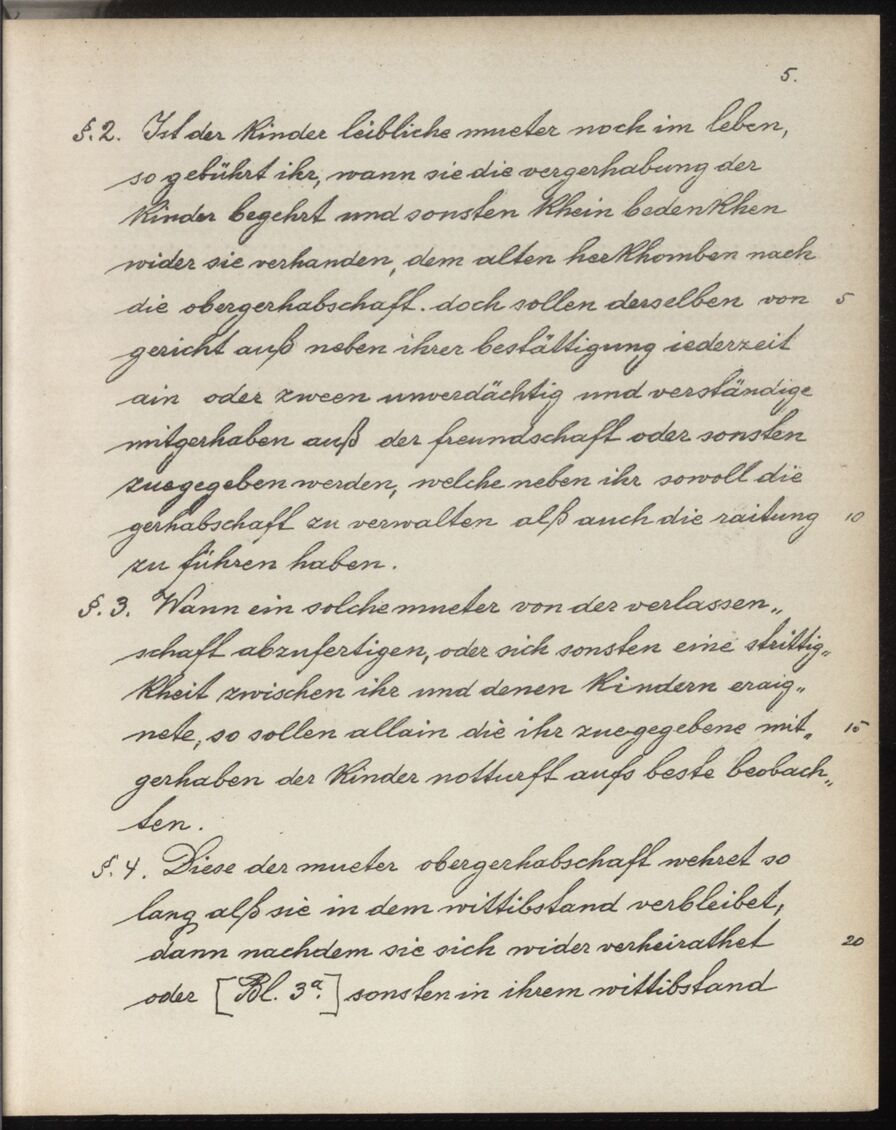 5.
§. 2. Ist der Kinder leibliche mueter noch im leben,
so gebührt ihr, wann sie die vergerhabung der
Kinder begehrt und sonsten khein bedenkhen
wider sie verhanden, dem alten herkhomben nach
die obergerhabschaft. doch sollen derselben von 5
gericht auß neben ihrer bestättigung iederzeit
ain oder zween unverdächtig und verständige
mitgerhaben auß der freundschaft oder sonsten
zuegegeben werden, welche neben ihr sowoll die
gerhabschaft zu verwalten alß auch die raitung 10
zu führen haben.
§. 3. Wann ein solche mueter von der verlassen„
schaft abzufertigen, oder sich sonsten eine strittig„
kheit zwischen ihr und denen Kindern eraig„
nete, so sollen allain die ihr zuegegebene mit„ 15
gerhaben der Kinder notturft aufs beste beobach„
ten.
§. 4. Diese der mueter obergerhabschaft wehret so
lang alß sie in dem wittibstand verbleibet,
dann nachdem sie sich wider verheirathet 20
oder [Bl. 3a.] sonsten in ihrem wittibstand